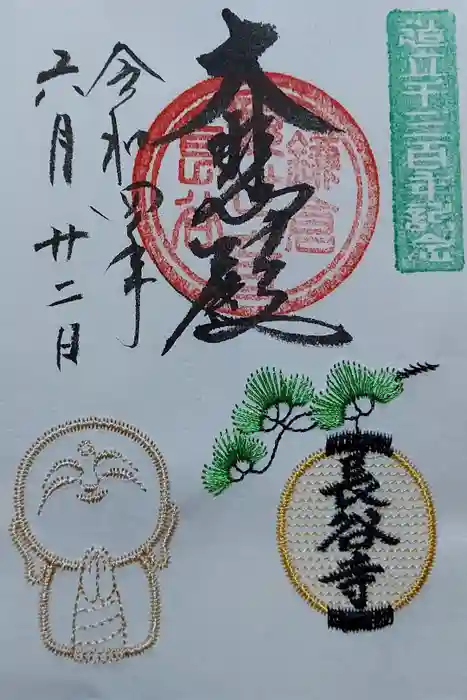 造立千三百年記念
大悲殿
鎌倉
令和四年
六月廿二日
長谷寺